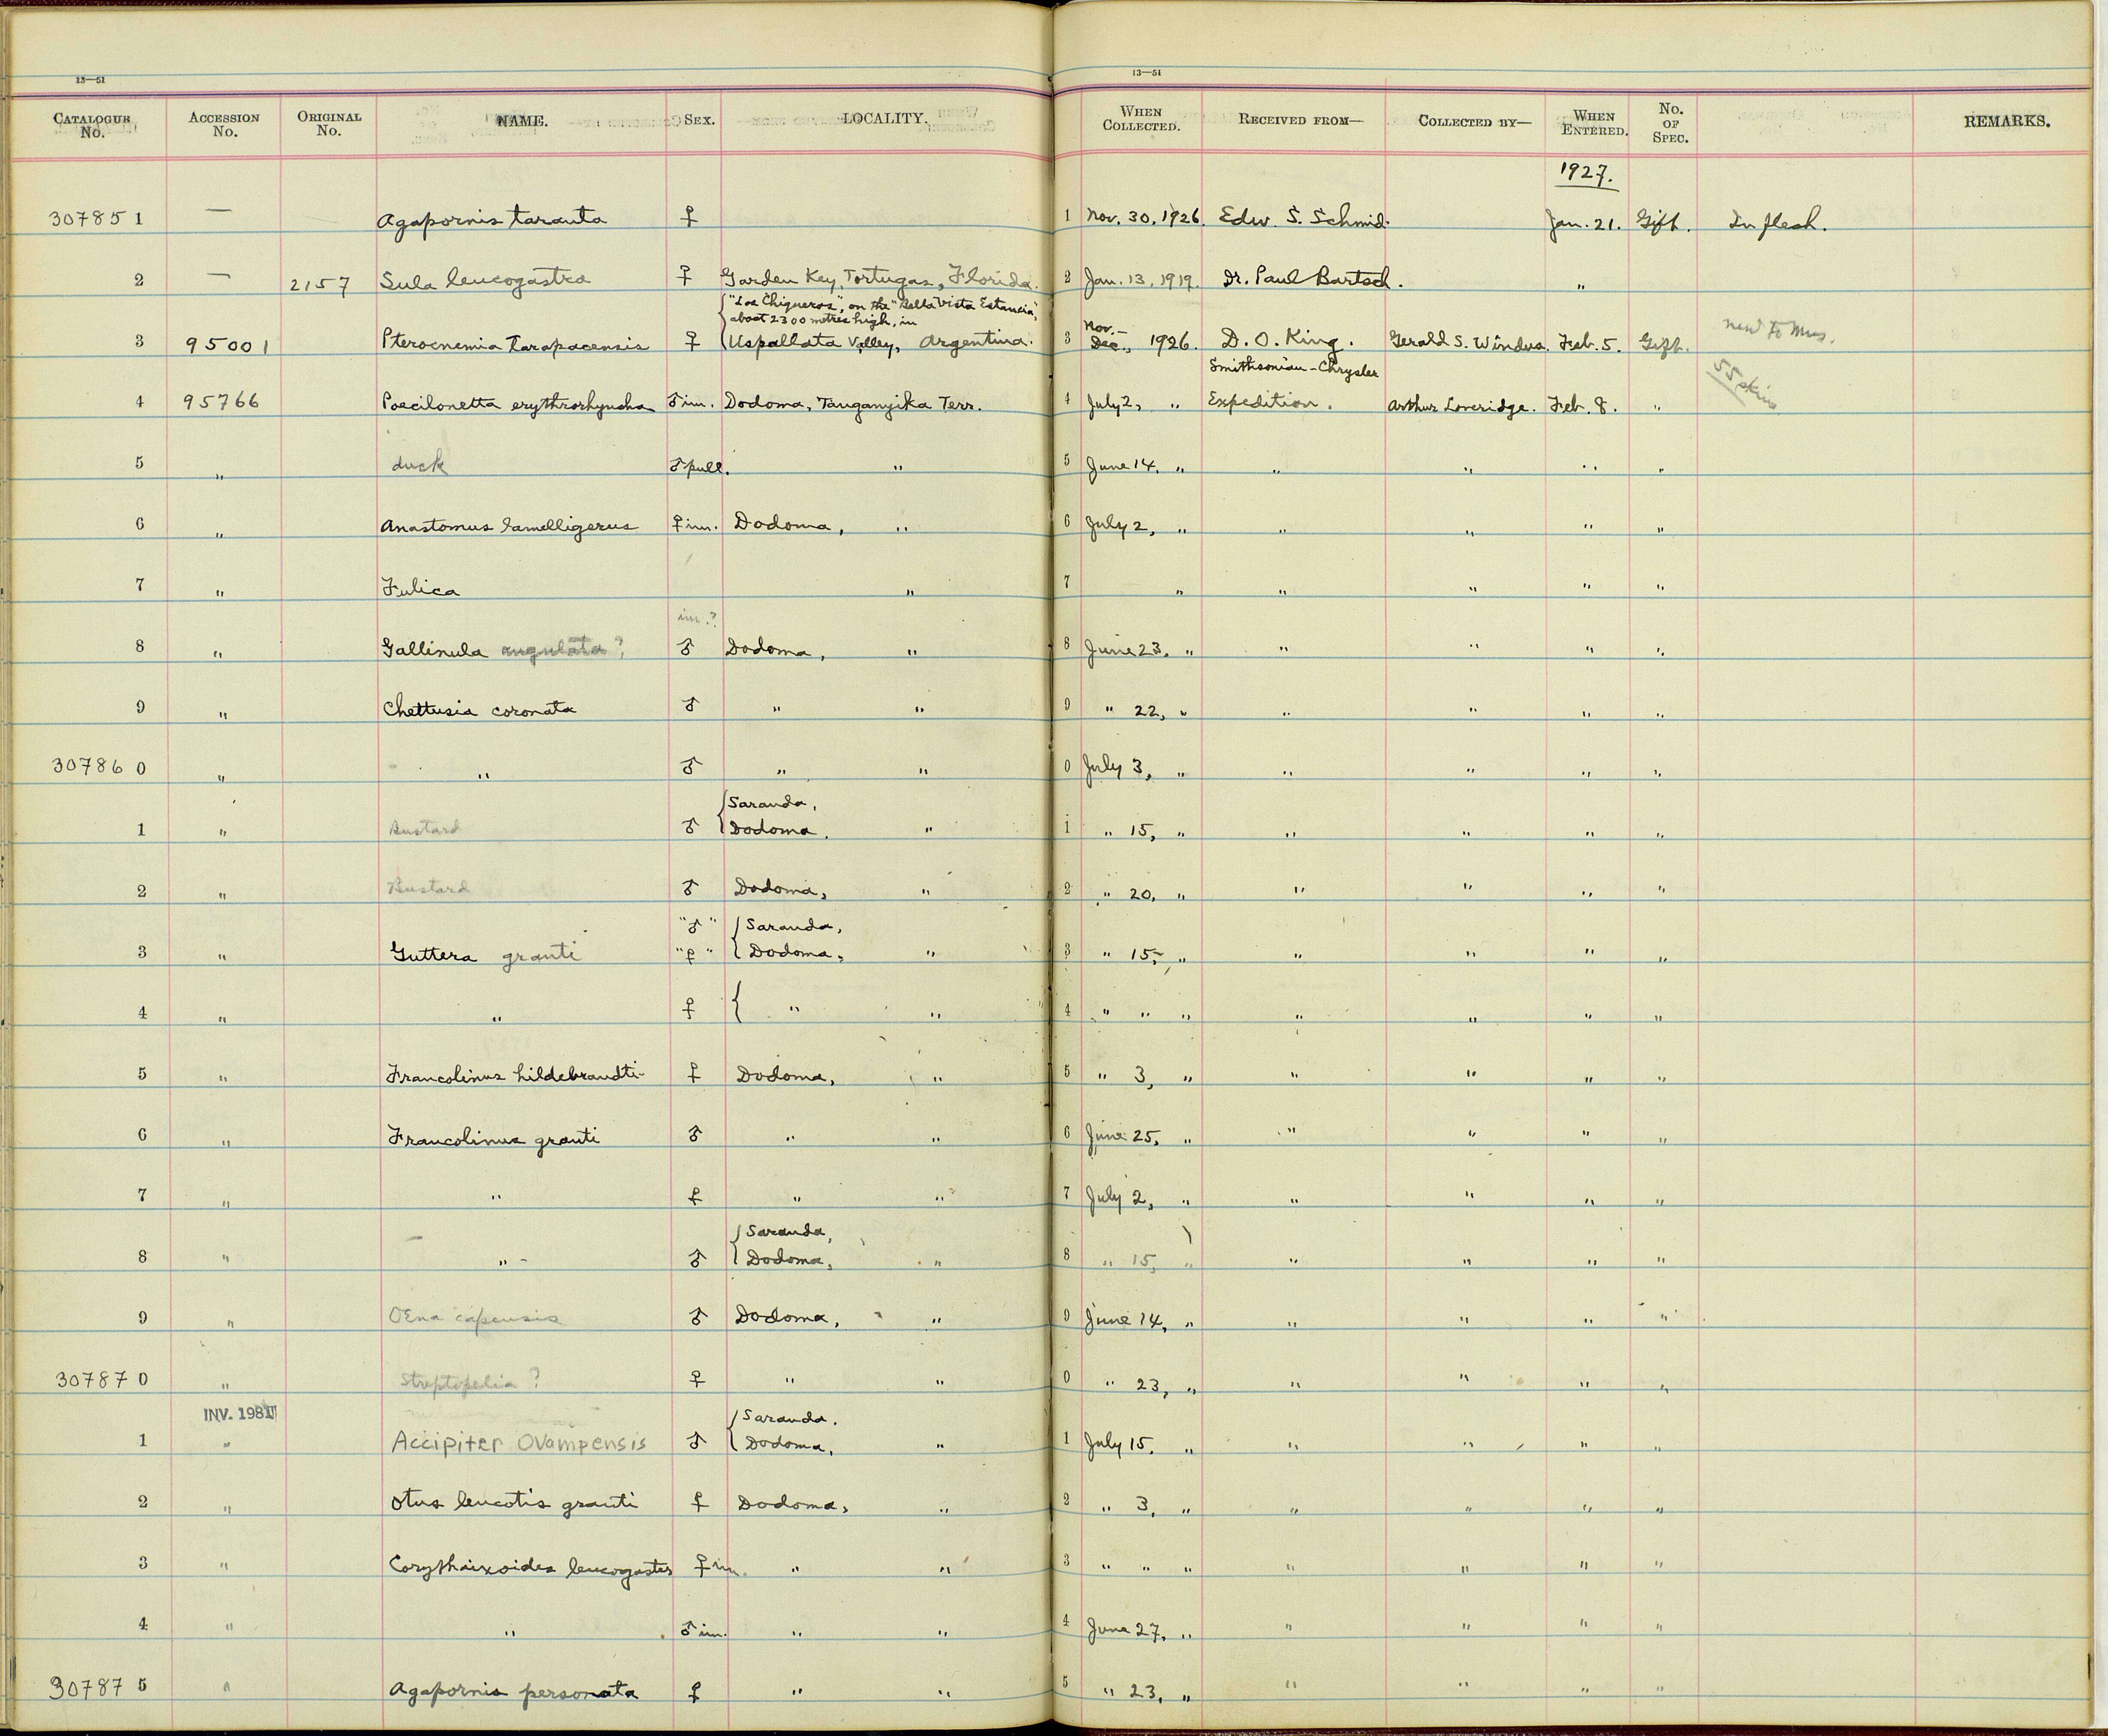 13—51 13—51
CATALOGUE No. ACCESSION No. ORIGINAL No. NAME. SEX. LOCALITY. WHEN COLLECTED. RECEIVED FROM— COLLECTED BY— WHEN ENTERED. No. OF SPEC. REMARKS.
1927.
307851 — Agapornis taranta ♀ 1 Nov. 30, 1926. Edw. S. Schmid. Jan. 21. Gift. In flesh.
2 — 2157 Sula leucogastra ♀ Garden Key, Tortugas, Florida. 2 Jan. 13, 1919. Dr. Paul Bartsch. "
"Los Chiqueros", on the "Bella Vista Estancia",
about 2300 metres high, in
3 95001 Pterocnemia tarapacensis ♀ Uspallata Valley, Argentina. 3 Nov.– Dec., 1926. D. O. King. Gerald S. Windus. Feb. 5. Gift. new to Mus.
Smithsonian-Chrysler
4 95766 Poecilonetta erythrorhyncha ♂ im. Dodoma, Tanganyika Terr. 4 July 2, " Expedition. Arthur Loveridge. Feb. 8. " 55 skins
5 " duck ♂ pull. " 5 June 14, " " " " "
6 " Anastomus lamelligerus ♀ im. Dodoma, " 6 July 2, " " " " "
7 " Fulica " 7 " " " " "
im.?
8 " Gallinula angulata? ♂ Dodoma, " 8 June 23, " " " " "
9 " Chettusia coronata ♂ " " 9 " 22, " " " " "
307860 " " ♂ " " 0 July 3, " " " " "
1 " Bustard ♂ { Saranda, Dodoma, " 1 " 15, " " " " "
2 " Bustard ♂ Dodoma, " 2 " 20, " " " " "
3 " Guttera granti "♂" "♀" { Saranda, Dodoma, " 3 " 15, " " " " "
4 " " ♀ { " " 4 " " " " " " "
5 " Francolinus hildebrandti ♀ Dodoma, " 5 " 3, " " " " "
6 " Francolinus granti ♂ " " 6 June 25, " " " " "
7 " " ♀ " " 7 July 2, " " " " "
8 " " ♂ { Saranda, Dodoma, " 8 " 15, " " " " "
9 " Oena capensis ♂ Dodoma, " 9 June 14, " " " " "
307870 " Streptopelia ? ♀ " " 0 " 23, " " " " "
INV. 1981
1 " Accipiter Ovampensis ♂ { Saranda. Dodoma, " 1 July 15, " " " " "
2 " Otus leucotis granti ♀ Dodoma, " 2 " 3, " " " " "
3 " Corythaixoides leucogaster ♀ im. " " 3 " " " " " " "
4 " " ♂ im. " " 4 June 27, " " " " "
307875 " Agapornis personata ♀ " " 5 " 23, " " " " "